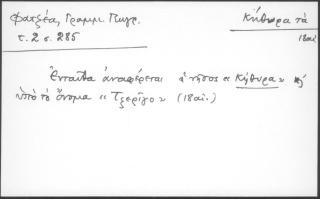 Φατζέας, Γραμμ. Γεωγρ.
τ. 2 σ. 285
Κύθηρα τά
18αἰ.
Ἐνταῦθα ἀναφέρεται ἡ νῆσος « Κύθηρα » καὶ
ὑπὸ τὸ ὄνομα « Τζερίγο » (18αἰ.)